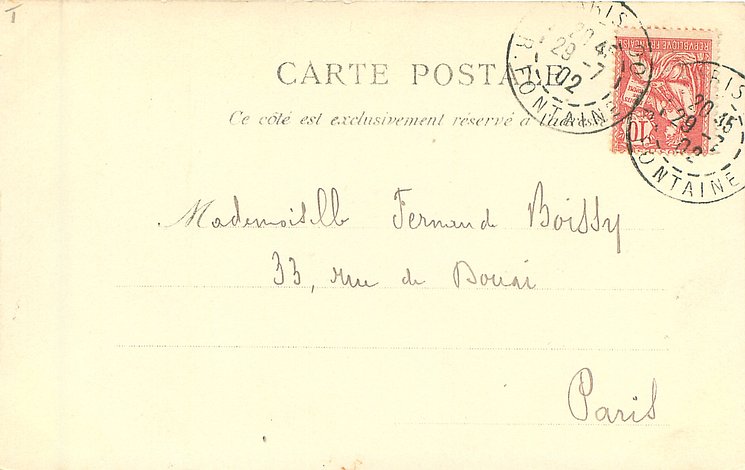 CARTE POSTALE
Ce côté est exclusivement réservé à l'adresse
PARIS
20 45
29 - 7
02
R. FONTAINE
REPUBLIQUE FRANÇAISE
10
PARIS
20 45
29 - 7
02
FONTAINE
Mademoiselle Fernande Boissy
33, rue de Douai
Paris